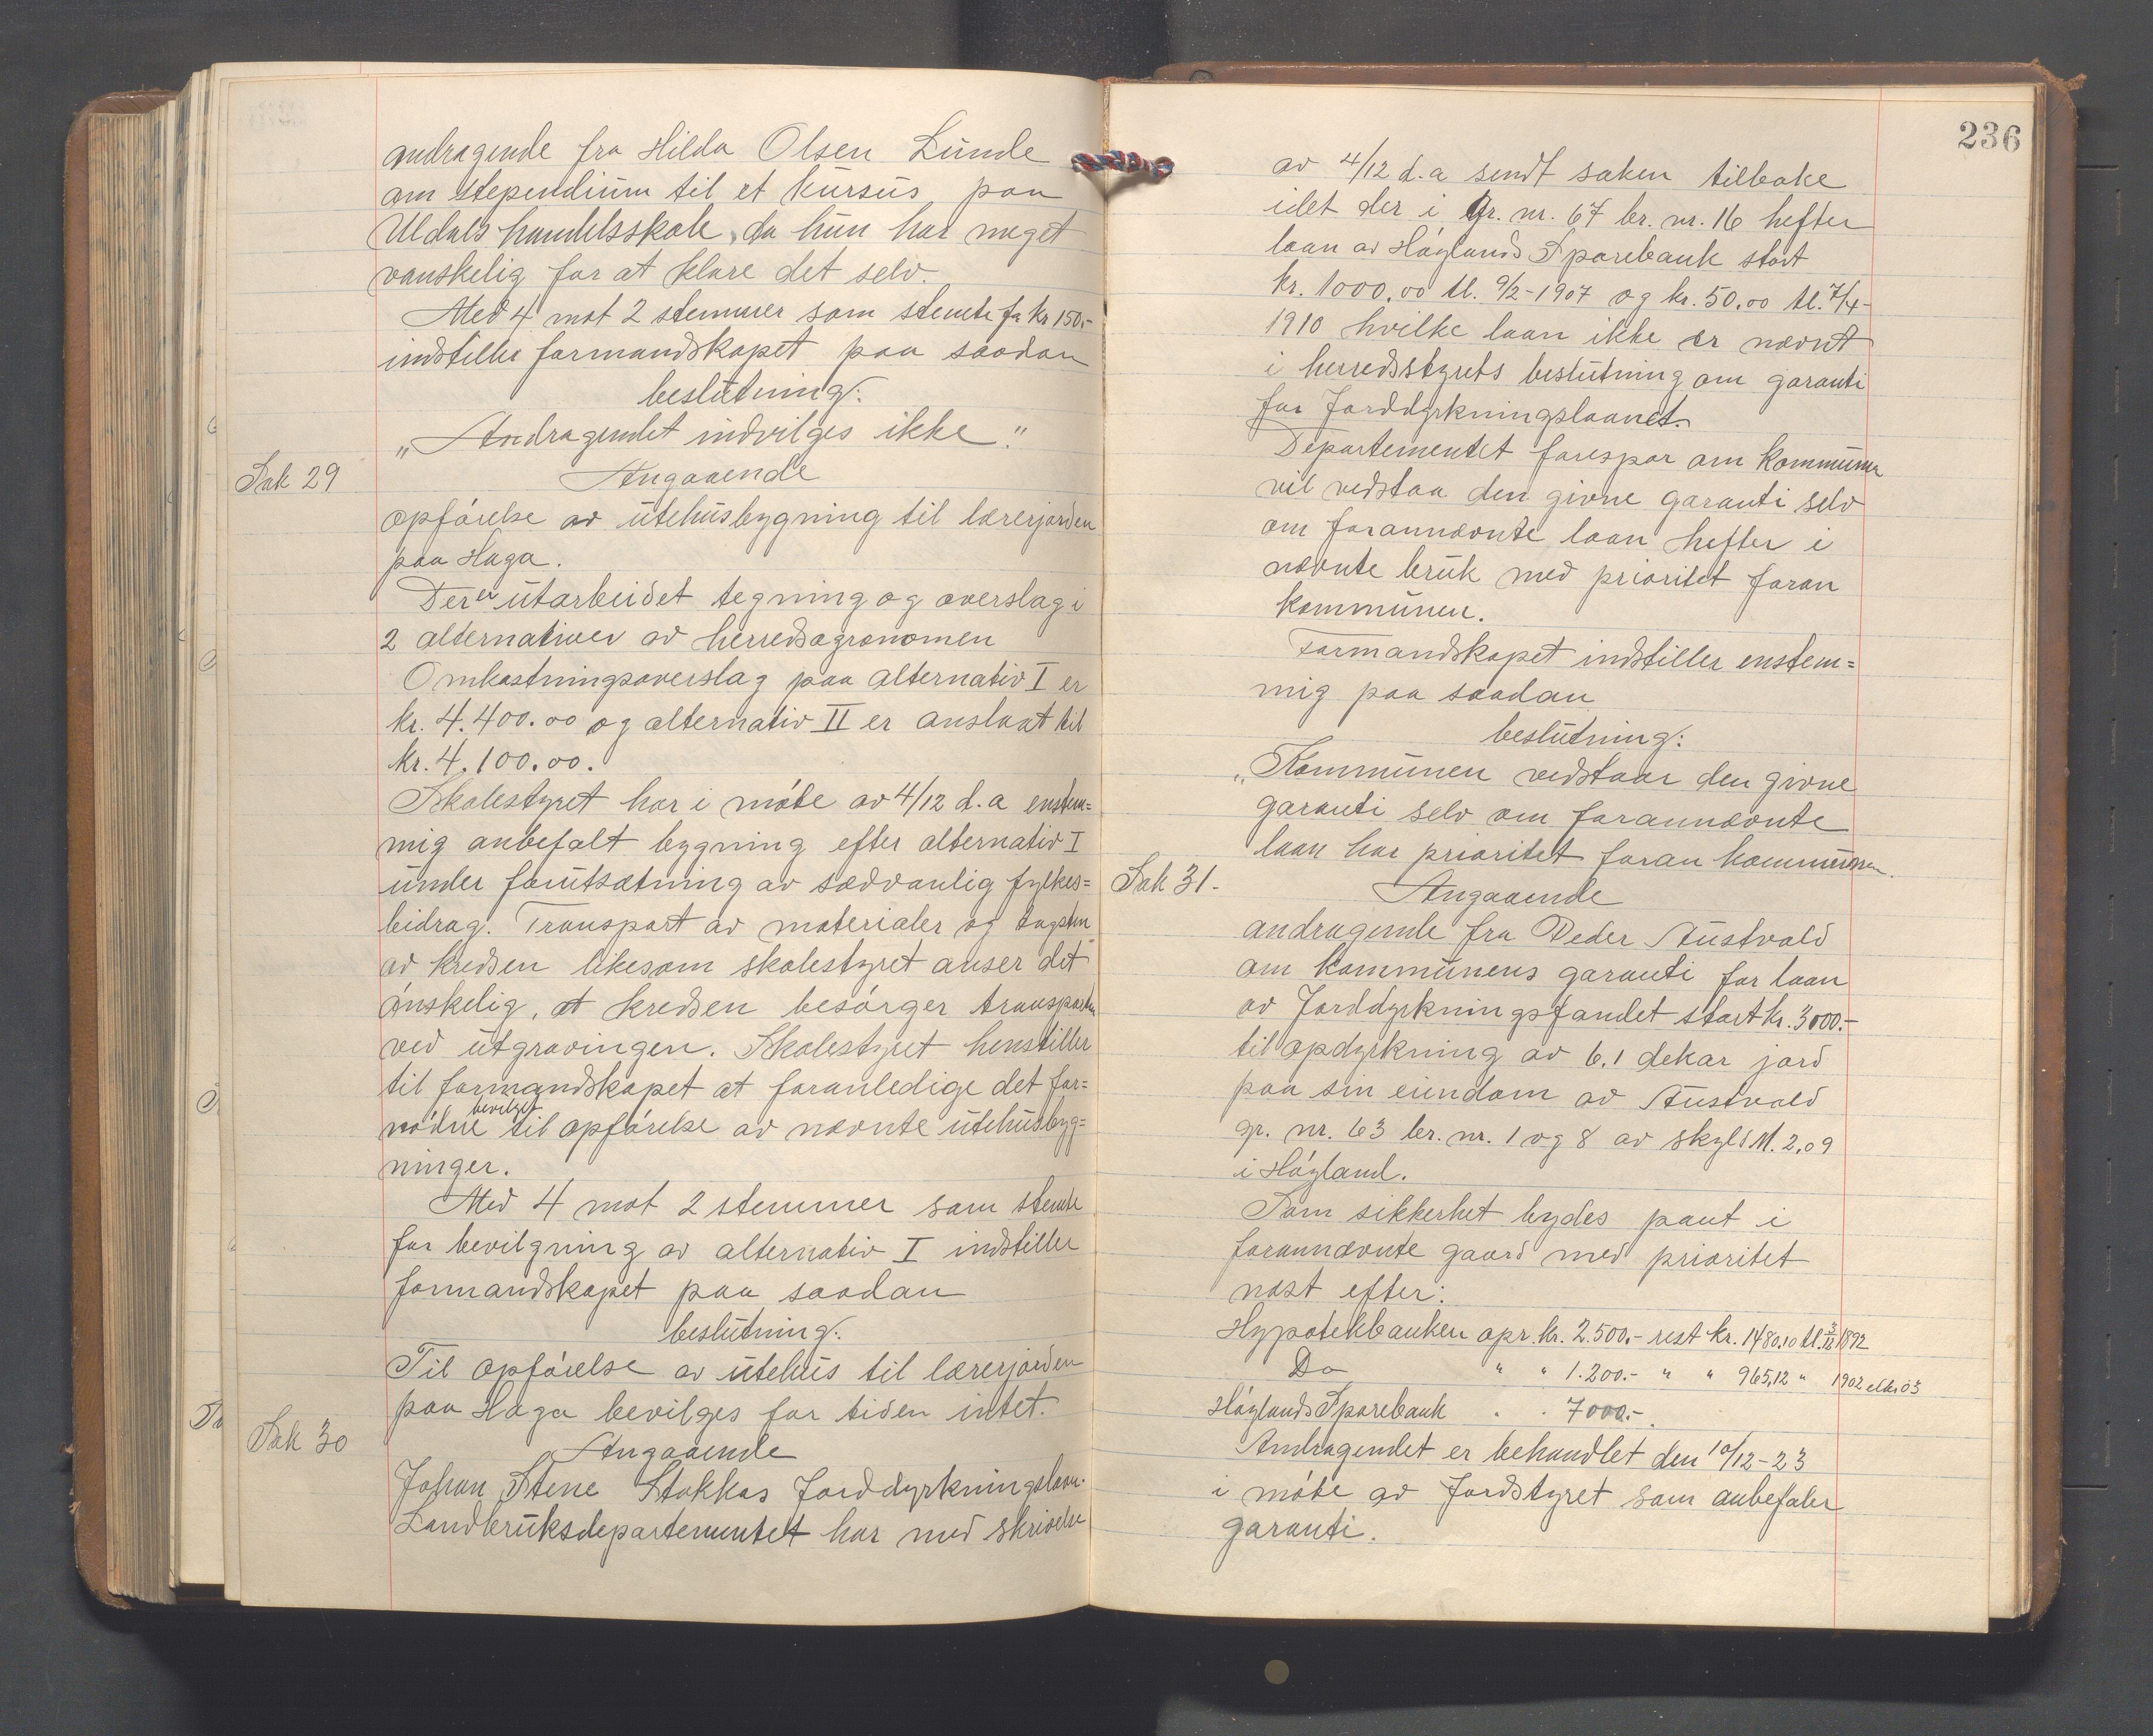 andragende fra Hilda Olsen Lunde
om stependium til et kursus paa
Uldals handelsskole, da hun har meget
vanskelig for at klare det selv.
Med 4 mot 2 stemmer som stemte for kr 150.-
indstiller formandskapet paa saadan
beslutning:
„Andragendet indvilges ikke."
Sak 29
Angaaende
opførelse av utehusbygning til lærerjorden
paa Haga.
Der er utarbeidet tegning og overslag i
2 alternativer av herredsagronomen
Omkostningsoverslag paa alternativ I er
kr. 4.400.00 og alternativ II er anslaat til
kr. 4.100.00.
Skolestyret har i møte av 4/12 d.a enstem=
mig anbefalt bygning efter alternativ I
under forutsætning av sædvanlig fylkes=
bidrag. Transport av materialer og tagsten
av kredsen likesom skolestyret anser det
ønskelig, at kredsen besørger transporten
ved utgravingen. Skolestyret henstiller
til formandskapet at foranledige det for=
nødne bevilget til opførelse av nævnte utehusbyg=
ninger.
Med 4 mot 2 stemmer som stemte
for bevilgning av alternativ I indstiller
formandskapet paa saadan
beslutning:
Til opførelse av utehus til lærerjorden
paa Haga bevilges for tiden intet.
Sak 30
Angaaende
Johan Stene Stokkas Jorddyrkningslaan.
Landbruksdepartementet har med skrivelse
236
av 4/12 d.a sendt saken tilbake
idet der i Gr. nr. 67 br. nr. 16 hefter
laan av Høylands Sparebank stort
kr. 1000.00 tl. 9/2-1907 og kr. 50.00 tl. 7/4-
1910 hvilke laan ikke er nævnt
i herredsstyrets beslutning om garanti
for Jorddyrkningslaanet.
Departementet forespør om kommunen
vil vedstaa den givne garanti selv
om forannævnte laan hefter i
nævnte bruk med prioritet foran
kommunen.
Formandskapet indstiller enstem=
mig paa saadan
beslutning:
„Kommunen vedstaar den givne
garanti selv om forannævnte
laan har prioritet foran kommunen.
Sak 31.-
Angaaende
andragende fra Peder Austvold
om kommunens garanti for laan
av Jorddyrkningsfondet stort kr. 3000.-
til opdyrkning av 6,1 dekar jord
paa sin eiendom av Austvold
gr. nr. 63 br. nr. 1 og 8 av skyld M. 2.09
i Høyland.
Som sikkerhet bydes pant i
forannævnte gaard med prioritet
næst efter:
Hypotekbanken opr. kr. 2.500.- rest kr. 1480.10 tl. 3/12 1892
Do " " 1.200.- " " 965,12 " 1902 eller 03
Høylands Sparebank . . 7000.-
Andragendet er behandlet den 10/12-23
i møte av Jordstyret som anbefaler
garanti.